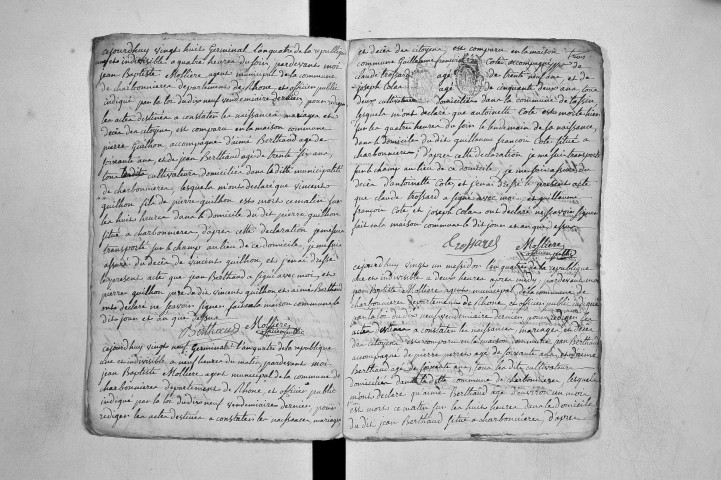 cejourdhuy vingt huit Germinal lan quatre de la republique
une et indivisible a quatre heures du soir, pardevant moi
jean Baptiste Mollière agent municipal de la commune
de charbonnieres departement du Rhone, et officier public
indiqué par la loi du dix neuf vendemiaire dernier, pour rediger
les actes destinés a constater les naissances mariages et
décès des citoyens, est comparu en la maison commune
pierre Guilhon, accompagné d'aimé Berthaud agé de
soixante ans, et de jean Berthaud agé de trente six ans,
tous cultivateurs domiciliés dans la ditte municipalité
de charbonnieres, lesquels m'ont declaré que vincent
guilhon fils de pierre guilhon est mort ce matin sur
les huit heures dans le domicile du dit pierre guilhon
sitüé a charbonnieres, d'après cette declaration je me suis
transporté sur le champ au lieu de ce domicile, je me suis
assuré du décès de vincent guilhon, et j'en ai dressé
le present acte que jean Berthaud a signé avec moi, et
pierre guilhon pere du dit vincent guilhon et aimé Berthaud
ont declaré ne savoir signer fait en la maison commune le
dit jour et an que dessus
Berthaud Mollière
cejourdhuy vingt neuf Germinal lan quatre de la republique
une et indivisible a neuf heures du matin, pardevant moi
jean Baptiste Mollière, agent municipal de la commune de
charbonnieres departement de Rhone, et officier public
indiqué par la loi du dix neuf vendemiaire dernier, pour
rediger les actes destinés a constater les naissances, mariages
et décès des citoyens, est comparu en la maison
commune Guillaume francois Cote, accompagné de
claude trossard agé de trente neuf ans et de
joseph Colas agé de cinquante deux ans, tous
deux cultivateurs domiciliés dans la commune de
lesquels m'ont declaré que antoinette Cote est morte hier
sur les quatre heures du soir le lendemain de la naissance,
dans le domicile du dit guillaume francois Cote sitüé a
charbonnieres; d'après cette declaration je me suis transporté
sur le champ au lieu de ce domicile, je me suis assuré du
décès d'antoinette Cote, et j'en ai dressé le present acte
que claude trossard a signé avec moi, et guillaume
francois Cote, et joseph Colas ont declaré ne savoir signer
fait en la maison commune le dit jour et an que dessus
trossard Mollière
cejourdhuy vingt un messidor lan quatre de la republique
une et indivisible a deux heures après midy pardevant moi
jean Baptiste Mollière agent municipal de la commune de
charbonnieres departement de Rhone, et officier public indiqué
par la loi du dix neuf vendemiaire dernier pour rediger les
actes destinés a constater les naissances, mariages et décès
des citoyens est comparu en la maison commune, jean Berthaud
accompagné de pierre agé de soixante ans et d'aimé
Berthaud agé de soixante ans, tous les dits cultivateurs
domiciliés dans la ditte commune de charbonnieres, lesquels
m'ont declaré qu'aimé Berthaud agé d'environ un mois
est mort ce matin sur les huit heures dans le domicile
du dit jean Berthaud sitüé a charbonnieres, d'après